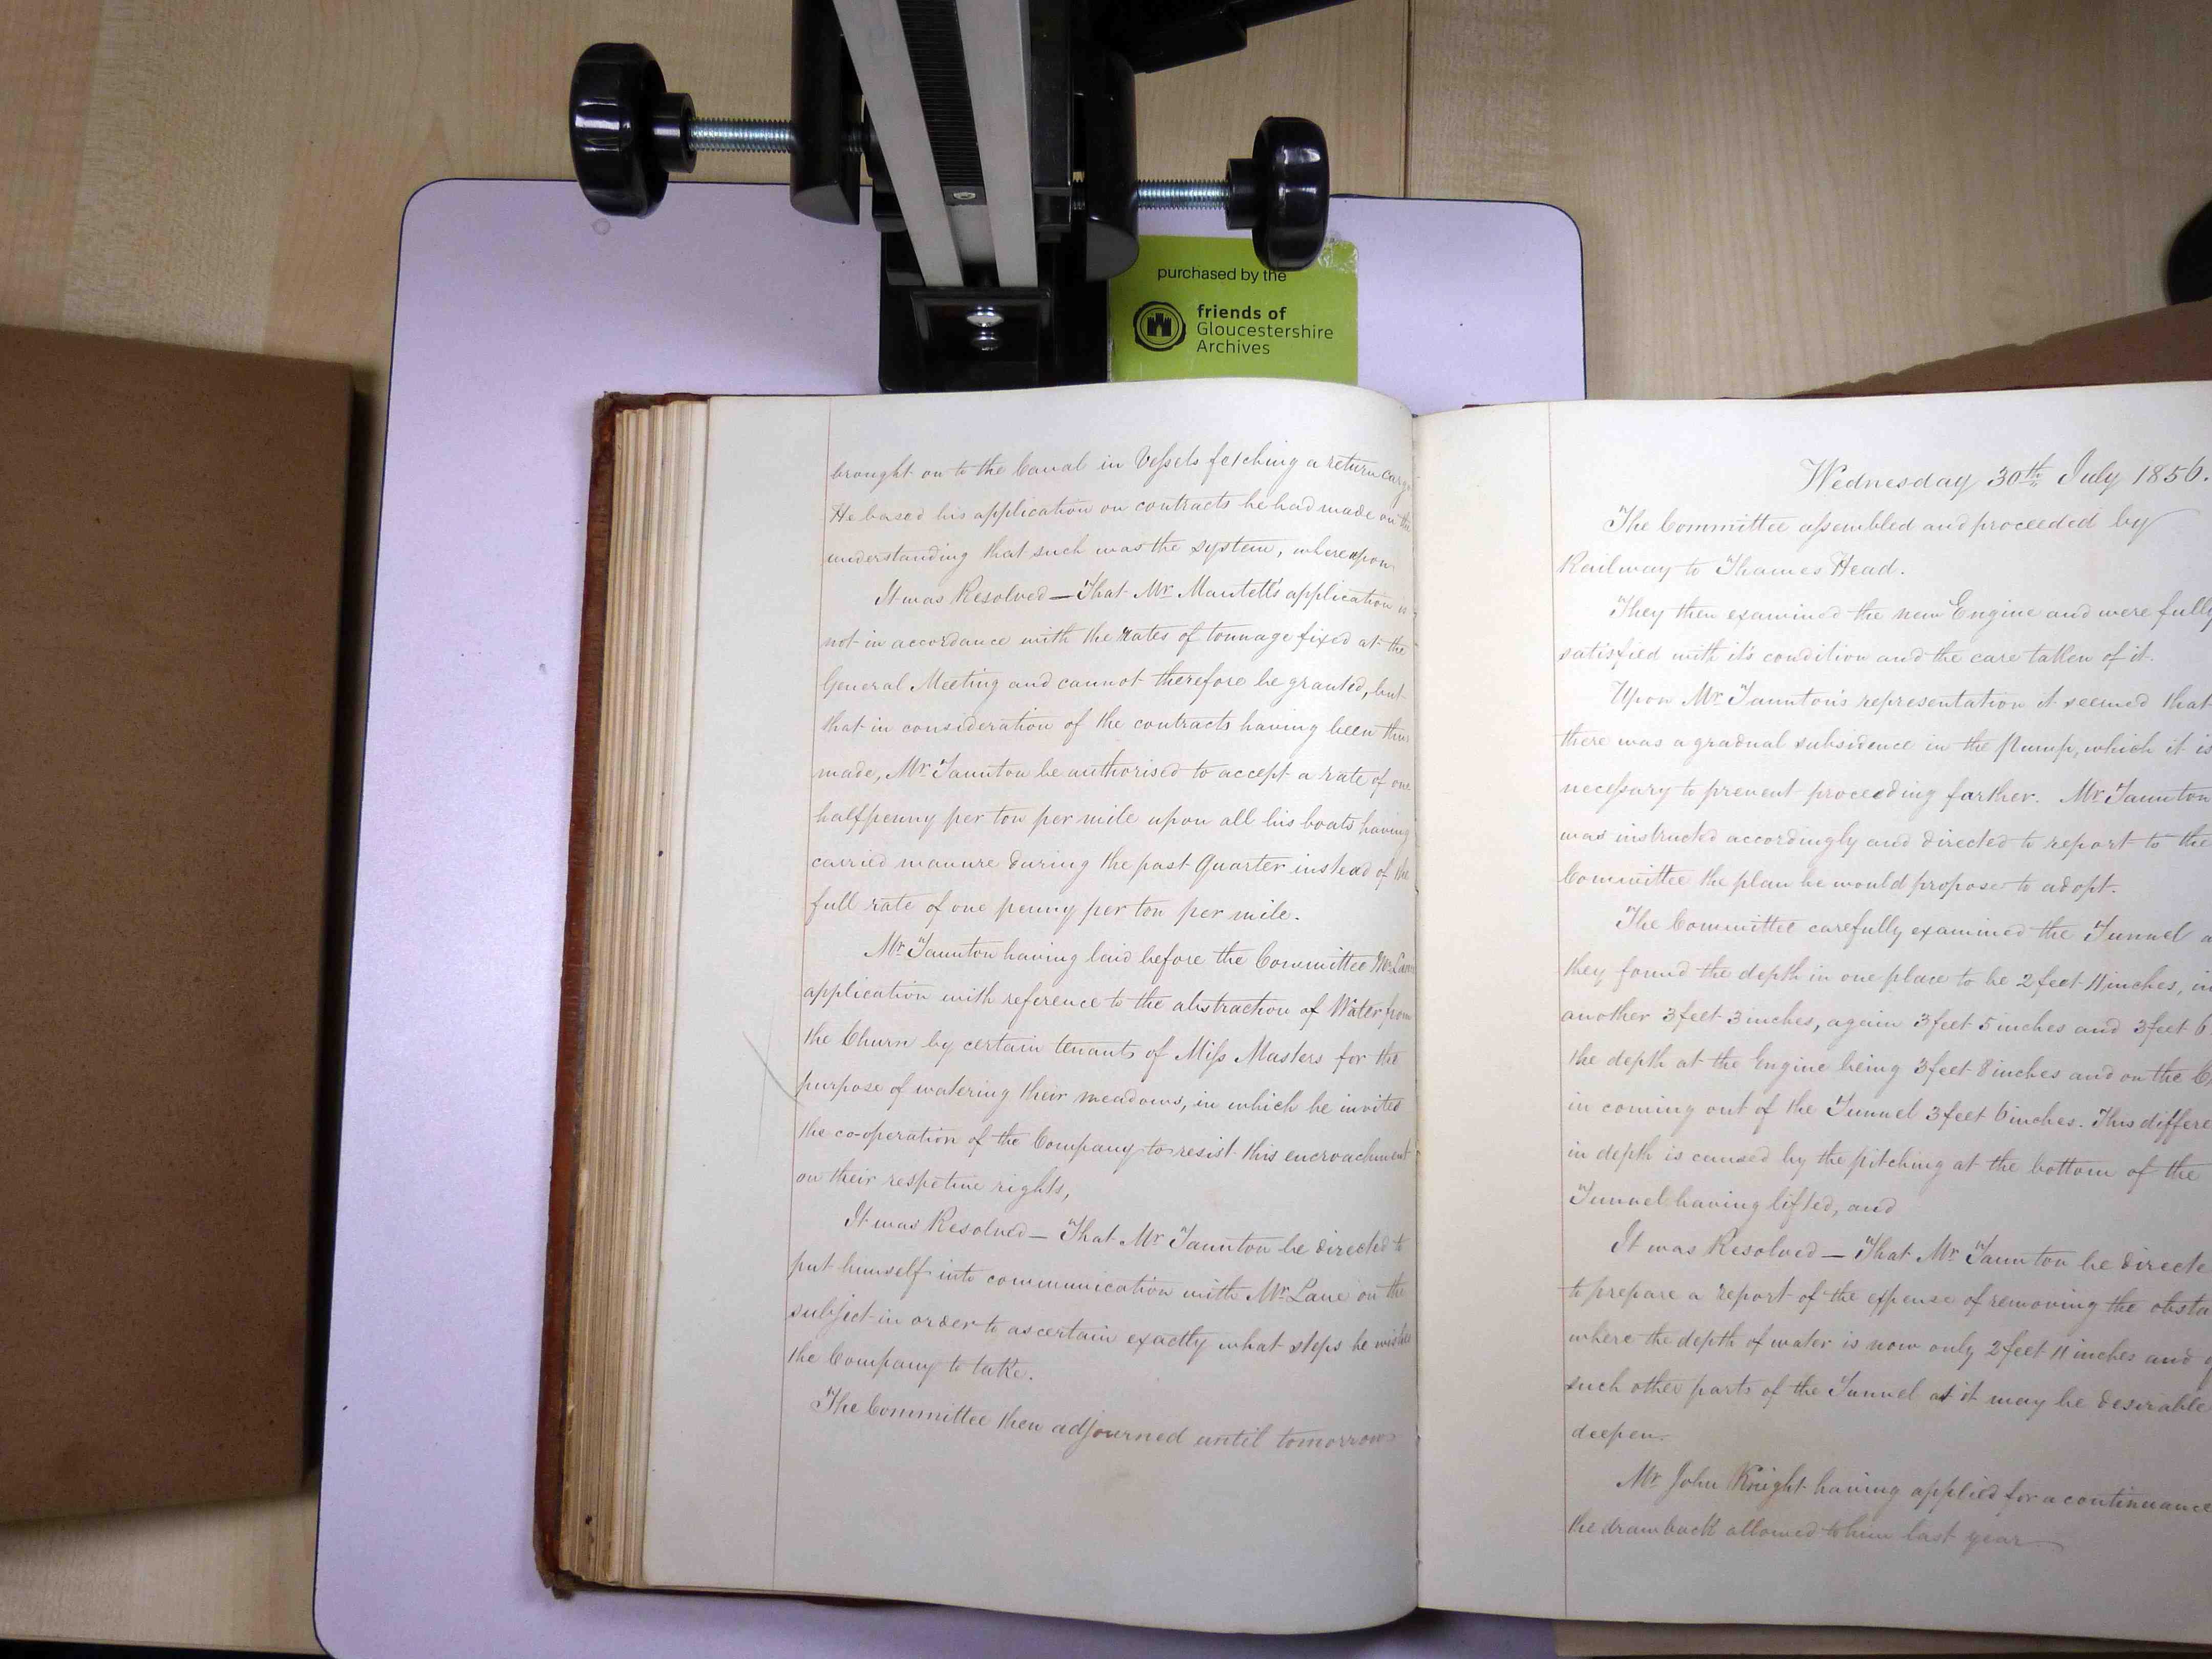 purchased by the
friends of
Gloucestershire
Archives
brought on to the Canal in Vessels fetching a return cargo
He based his application on contracts he had made on the
understanding that such was the system, whereupon
It was Resolved — That Mr Mantell's application is
not in accordance with the rates of tonnage fixed at the
General Meeting and cannot therefore be granted, but
that in consideration of the contracts having been thus
made, Mr Taunton be authorised to accept a rate of one
halfpenny per ton per mile upon all his boats having
carried manure during the past Quarter instead of the
full rate of one penny per ton per mile.
Mr Taunton having laid before the Committee Mr Lane
application with reference to the abstraction of Water from
the Churn by certain tenants of Miss Masters for the
purpose of watering their meadows, in which he invited
the co-operation of the Company to resist this encroachment
on their respetive rights,
It was Resolved — That Mr Taunton be directed to
put himself into communication with Mr Lane on the
subject in order to ascertain exactly what steps he wishes
the Company to take.
The Committee then adjourned until tomorrow
Wednesday 30th July 1856.
The Committee assembled and proceeded by
Railway to Thames Head.
They then examined the new Engine and were fully
satisfied with it's condition and the care taken of it.
Upon Mr Taunton's representation it seemed that
there was a gradual subsidence in the Pump, which it is
necessary to prevent proceeding farther. Mr Taunton
was instructed accordingly and directed to report to the
Committee the plan he would propose to adopt.
The Committee carefully examined the Tunnel a
they found the depth in one place to be 2 feet 11 inches, in
another 3 feet 3 inches, again 3 feet 5 inches and 3 feet 6
the depth at the Engine being 3 feet 8 inches and on the C
in coming out of the Tunnel 3 feet 6 inches. This differe
in depth is caused by the pitching at the bottom of the
Tunnel having lifted, and
It was Resolved — That Mr Taunton be directe
to prepare a report of the expense of removing the obsta
where the depth of water is now only 2 feet 11 inches and of
such other parts of the Tunnel as it may be desirable
deepen.
Mr John Knight having applied for a continuance
the drawback allowed to him last year